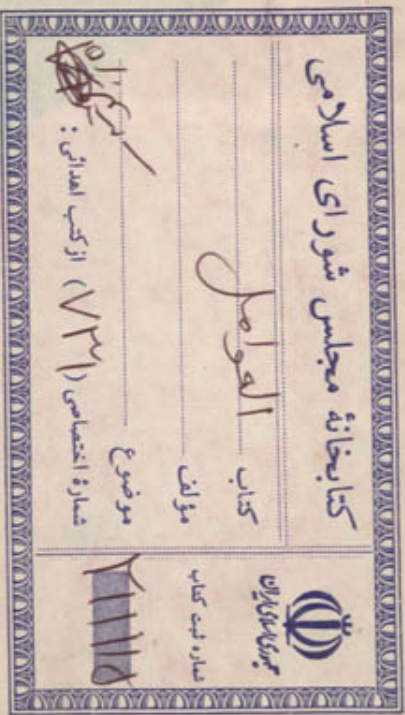 کتابخانهٔ مجلس شورای اسلامی
کتاب العوامل
مؤلف
موضوع
شمارهٔ اختصاصی (۷۳۱) از کتب اهدائی :
جمهوری اسلامی ایران
شماره ثبت کتاب